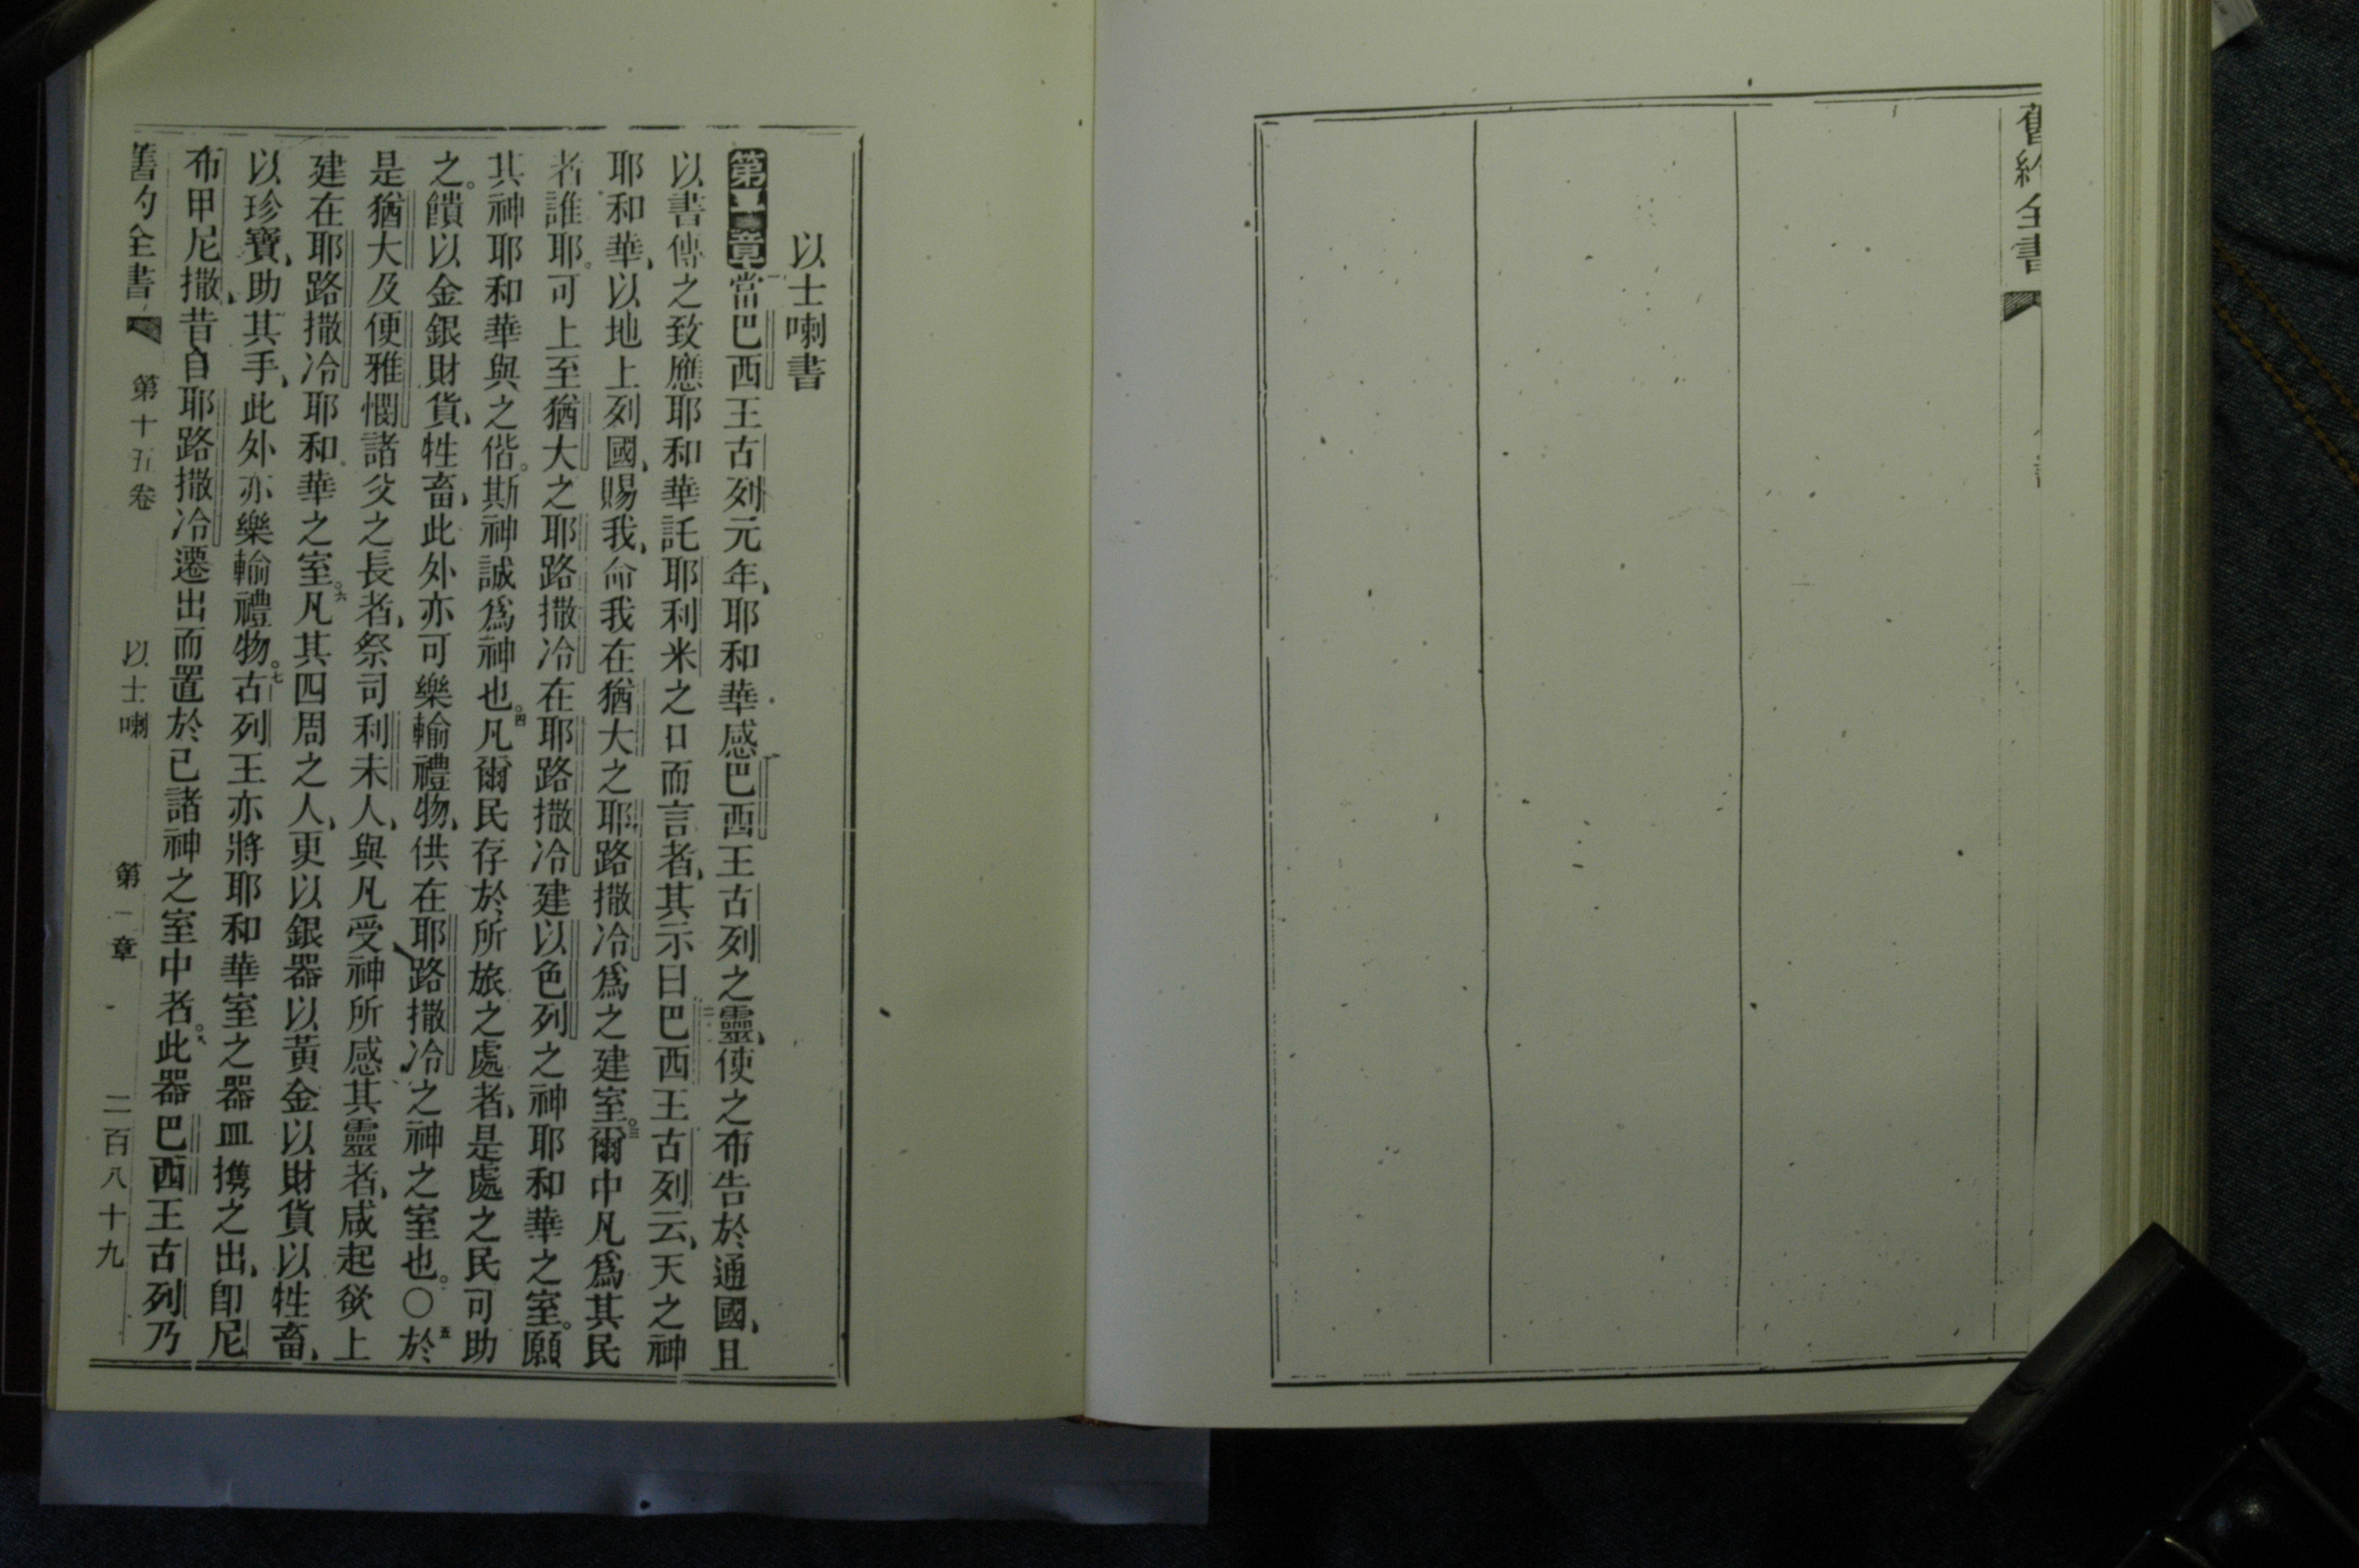 舊約全書
以士喇書
第一章 一當巴西王古列元年、耶和華感巴西王古列之靈、使之布告於通國、且
以書傳之致應耶和華託耶利米之口而言者、其示曰二巴西王古列云、天之神
耶和華、以地上列國、賜我、命我在猶大之耶路撒冷爲之建室。三爾中凡爲其民
者誰耶。可上至猶大之耶路撒冷在耶路撒冷建以色列之神耶和華之室。願
其神耶和華與之偕。斯神誠爲神也。四凡爾民存於所旅之處者、是處之民可助
之。饋以金銀財貨、牲畜、此外亦可樂輸禮物、供在耶路撒冷之神之室也。〇五於
是猶大及便雅憫諸父之長者、祭司利未人、與凡受神所感其靈者、咸起欲上
建在耶路撒冷耶和華之室。六凡其四周之人、更以銀器以黃金以財貨以牲畜、
以珍寶、助其手、此外亦樂輸禮物。七古列王亦將耶和華室之器皿攜之出、卽尼
布甲尼撒、昔自耶路撒冷遷出而置於己諸神之室中者。八此器巴西王古列乃
舊約全書 第十五卷 以士喇 第一章 二百八十九